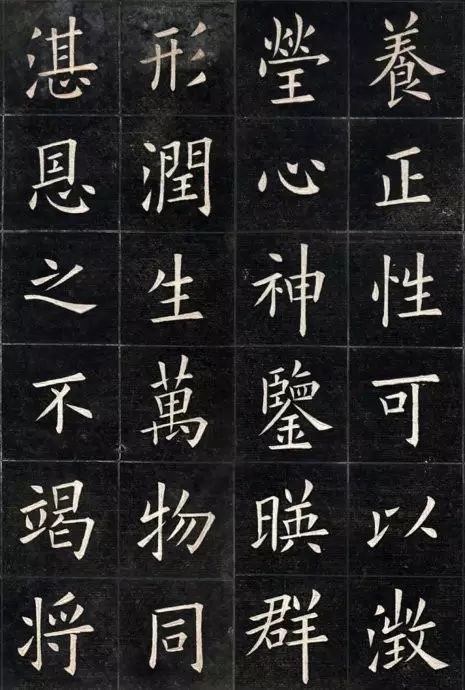 養正性可以澂
瑩心神鑒暎群
形潤生萬物同
湛恩之不竭将